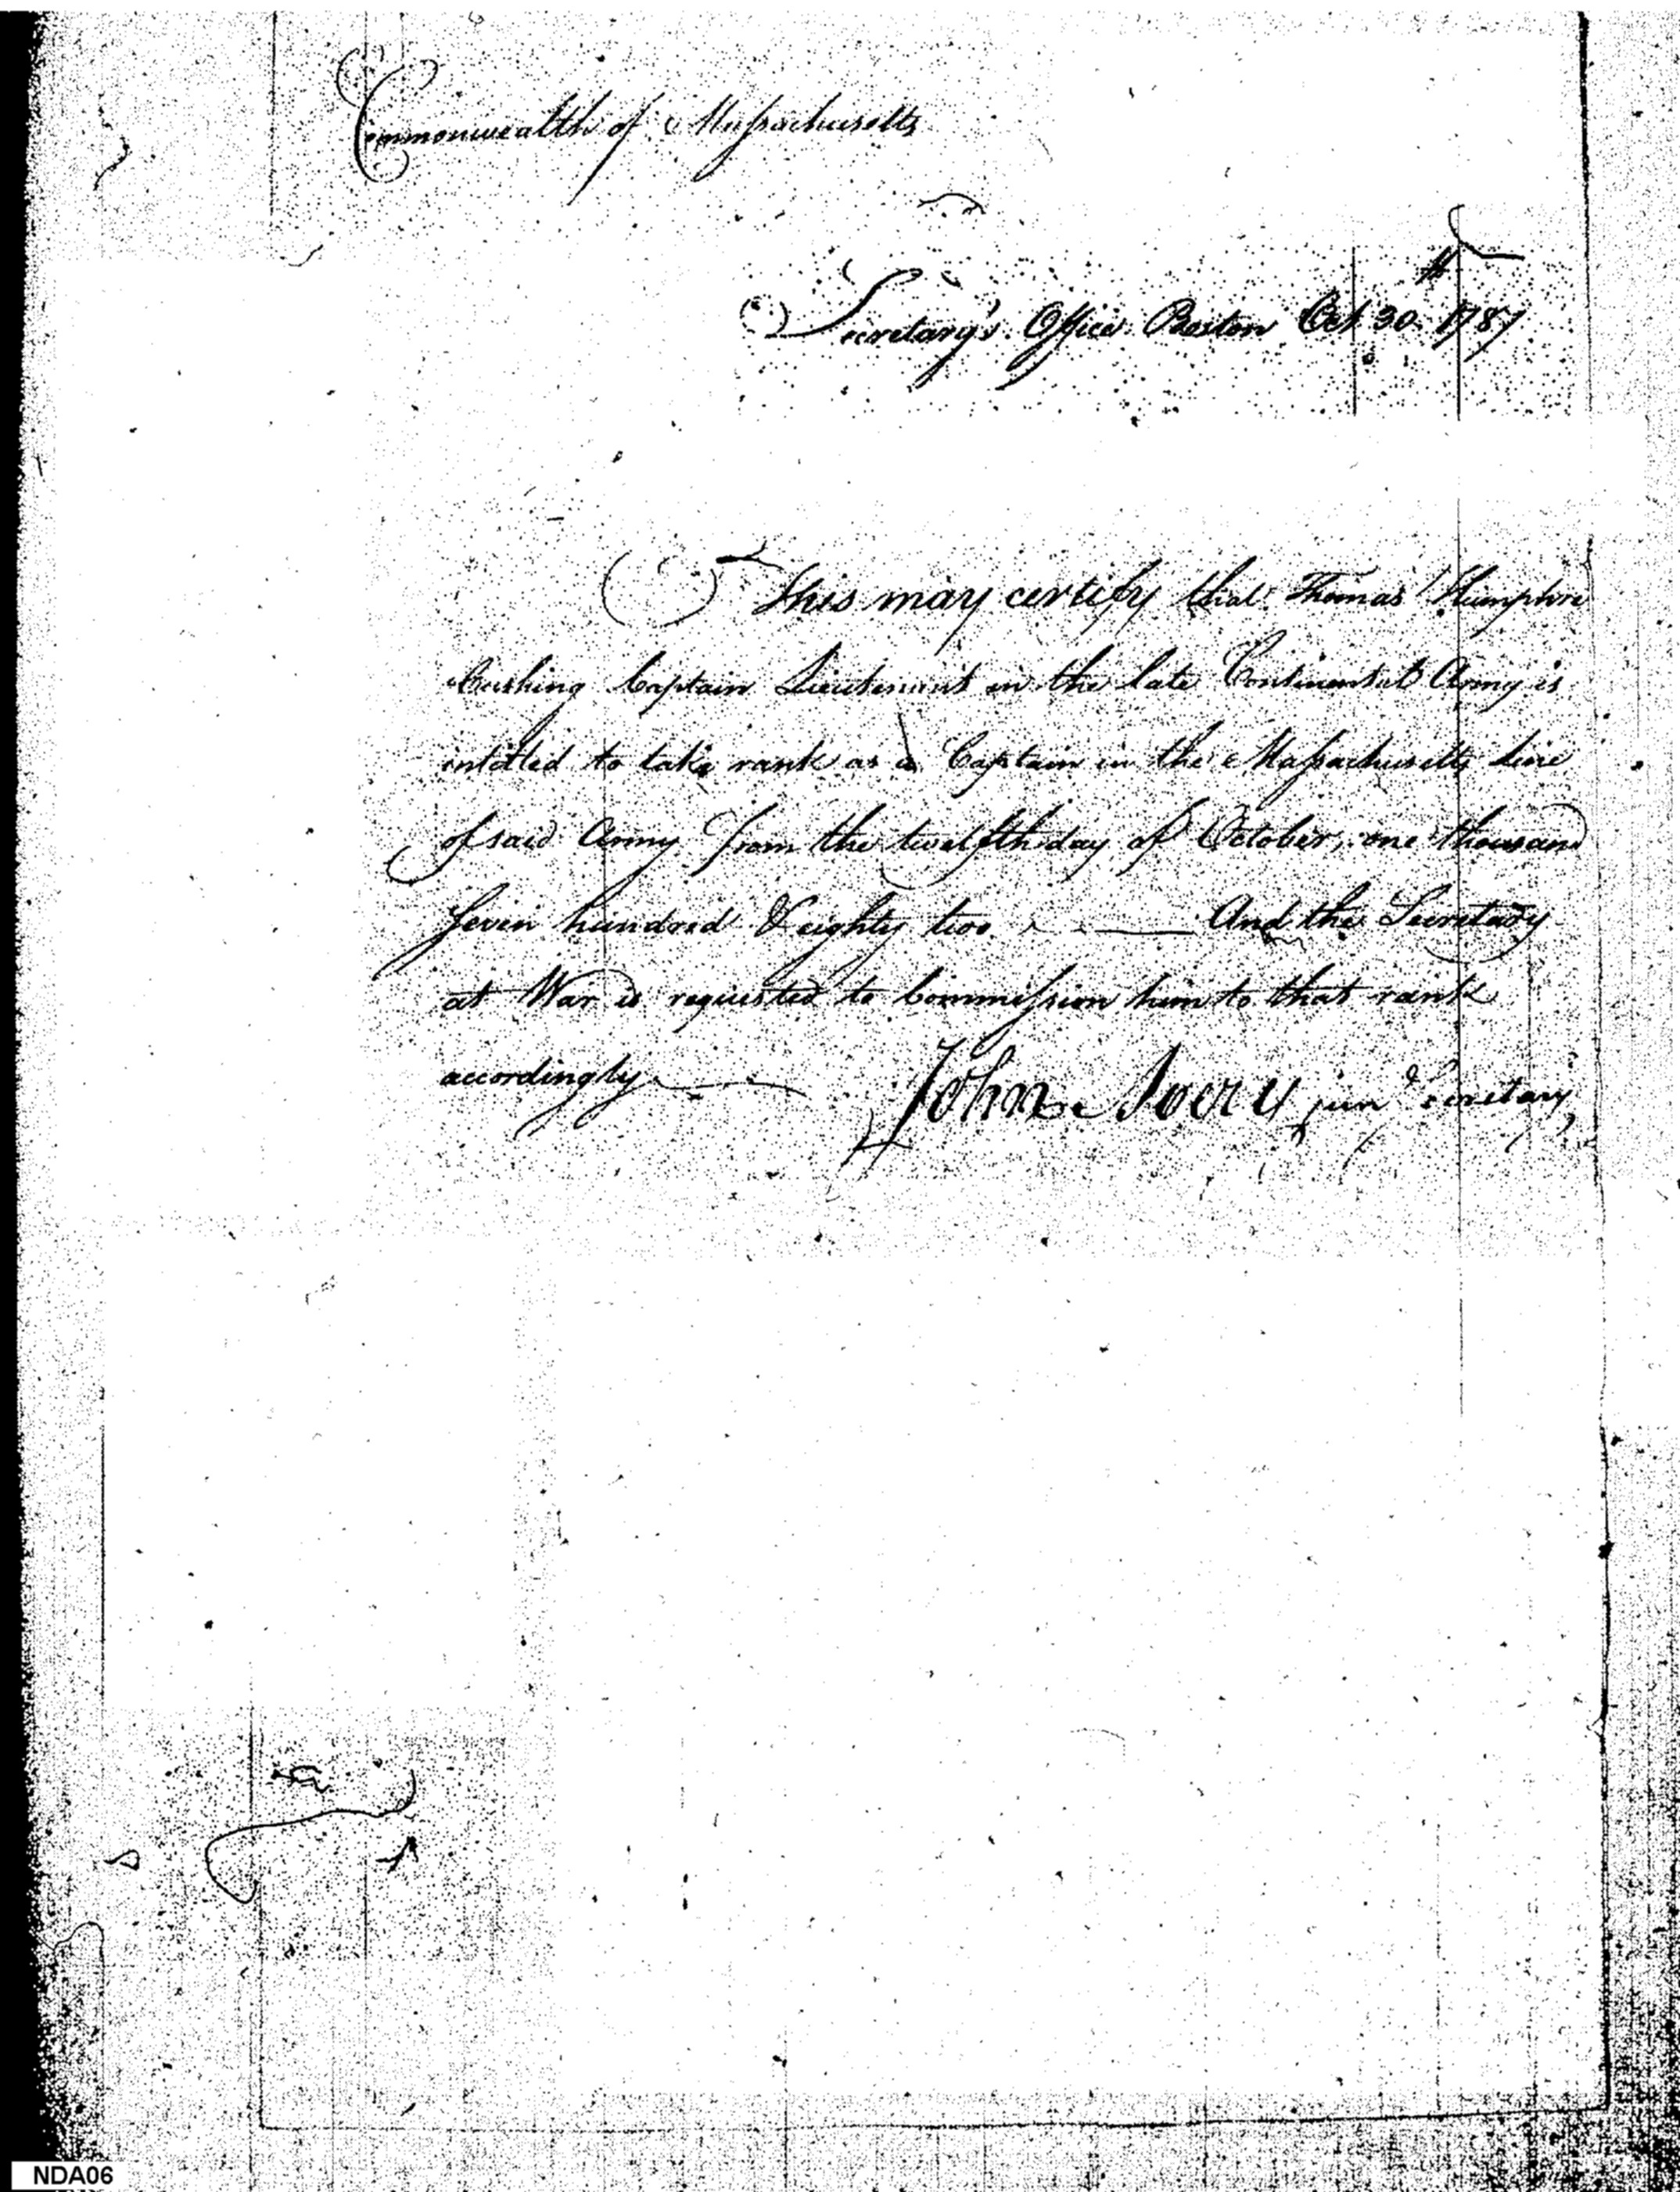 Commonwealth of Massachusetts
Secretary's Office Boston Oct 30 1787
This may certify that Thomas Humphre
Cushing Captain Lieutenant in the late Continental Army is
intitled to take rank as a Captain in the Massachusetts line
of said Army from the twelfth day of October, one thousand
seven hundred & eighty two ——— And the Secretary
at War is requested to Commission him to that rank
accordingly
John Avery junr Secretary
NDA06